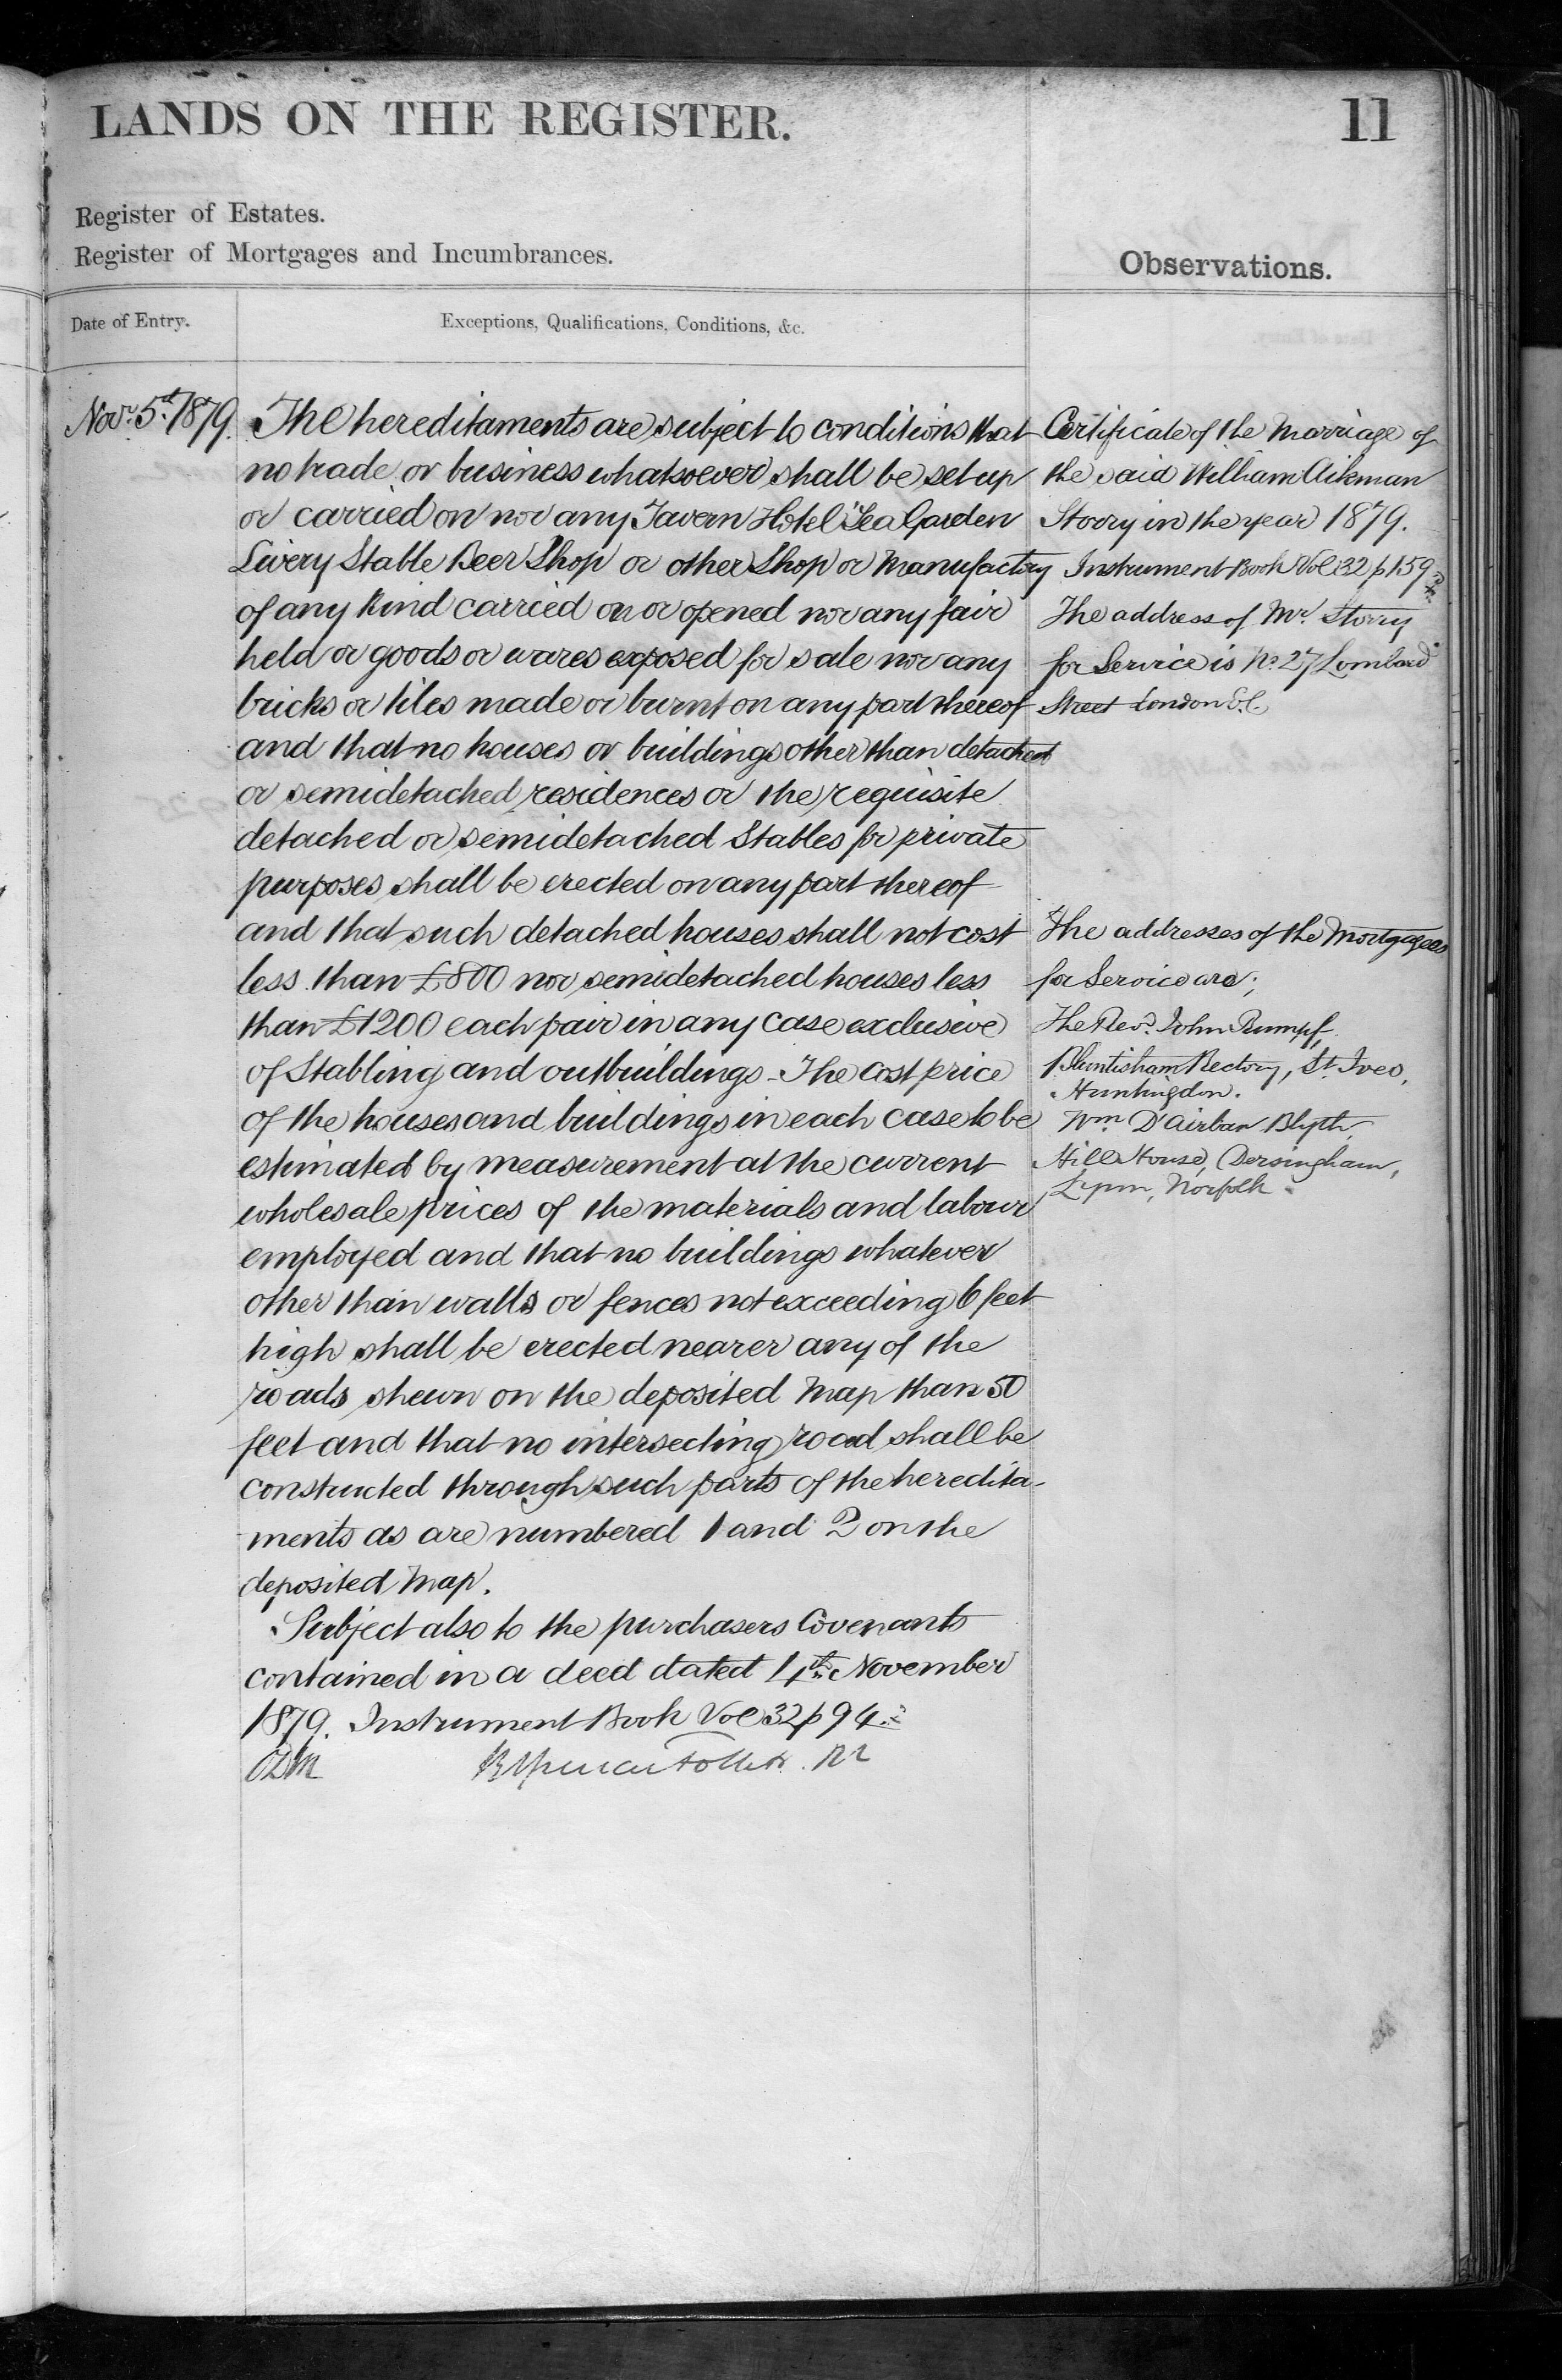 LANDS ON THE REGISTER.
11
Register of Estates.
Register of Mortgages and Incumbrances.
Observations.
Date of Entry.
Exceptions, Qualifications, Conditions, &c.
Novr. 5th 1879.
The hereditaments are subject to conditions that
no trade or business whatsoever shall be set up
or carried on nor any Tavern Hotel Tea Garden
Livery Stable Beer Shop or other Shop or Manufactory
of any kind carried on or opened nor any fair
held or goods or wares exposed for sale nor any
bricks or tiles made or burnt on any part thereof
and that no houses or buildings other than detached
or semidetached residences or the requisite
detached or semidetached Stables for private
purposes shall be erected on any part thereof
and that such detached houses shall not cost
less than £800 nor semidetached houses less
than £1200 each pair in any case exclusive
of Stabling and outbuildings - The cost price
of the houses and buildings in each case to be
estimated by measurement at the current
wholesale prices of the materials and labour
employed and that no buildings whatever
other than walls or fences not exceeding 6 feet
high shall be erected nearer any of the
roads shewn on the deposited Map than 50
feet and that no intersecting road shall be
constructed through such parts of the heredita-
ments as are numbered 1 and 2 on the
deposited Map.
Subject also to the purchasers Covenants
contained in a deed dated 4th November
1879. Instrument Book Vol 32 p 94.
Certificate of the Marriage of
the said William Aikman
Storry in the year 1879.
Instrument Book Vol 32 p 159
The address of Mr. Storry
for Service is No. 27 Lombard
Street London E.C.
The addresses of the Mortgagees
for Service are;
The Revd. John Rumpf,
Bluntisham Rectory, St. Ives,
Huntingdon.
Wm D'Airban Blyth,
Hill House, Dersingham,
Lynn, Norfolk.